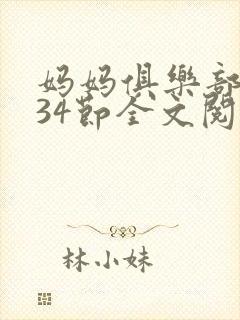 妈妈俱樂部
34節全文閱
林小妹